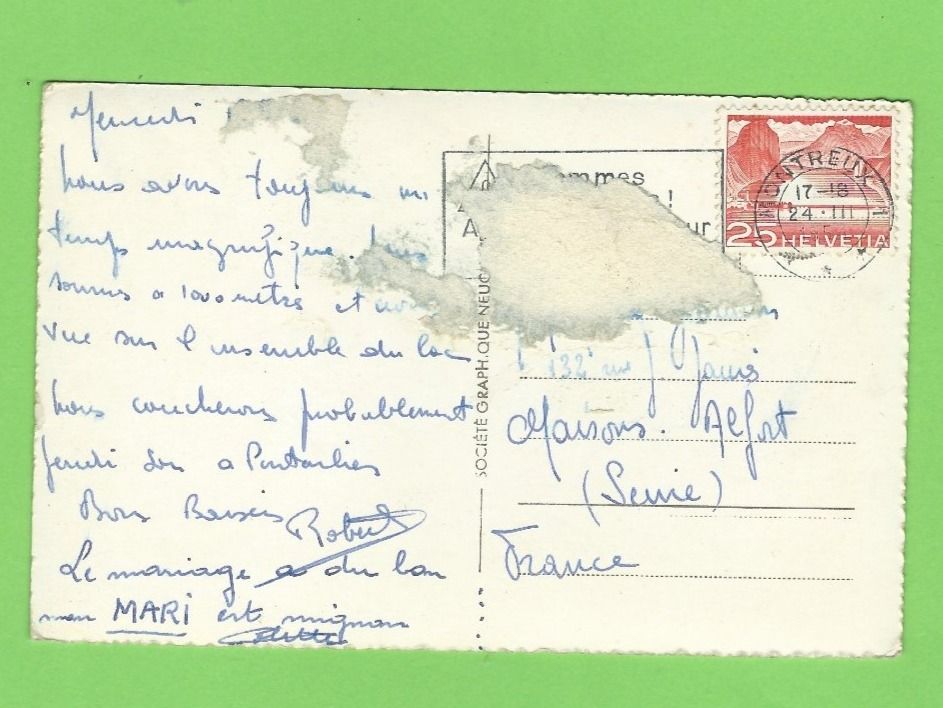 nous avons toujours un
temps magnifique. Nous
sommes a 1000 metres et avons
vue sur l'ensemble du lac
nous coucherons probablement
jeudi soir a Pontarlier
Bons Baisers
Robert
Le mariage du
mon MARI est mignon
SOCIÉTÉ GRAPHIQUE NEUC
ommes
!
A ur
MONTREUX 1
17-18
24·III
25 HELVETIA
132 rue J. Jaurès
Maisons. Alfort
(Seine)
France